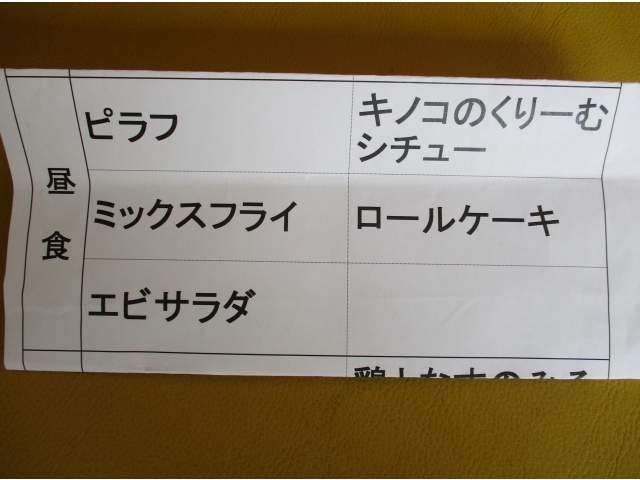 昼食
ピラフ
キノコのくりーむ
シチュー
ミックスフライ
ロールケーキ
エビサラダ